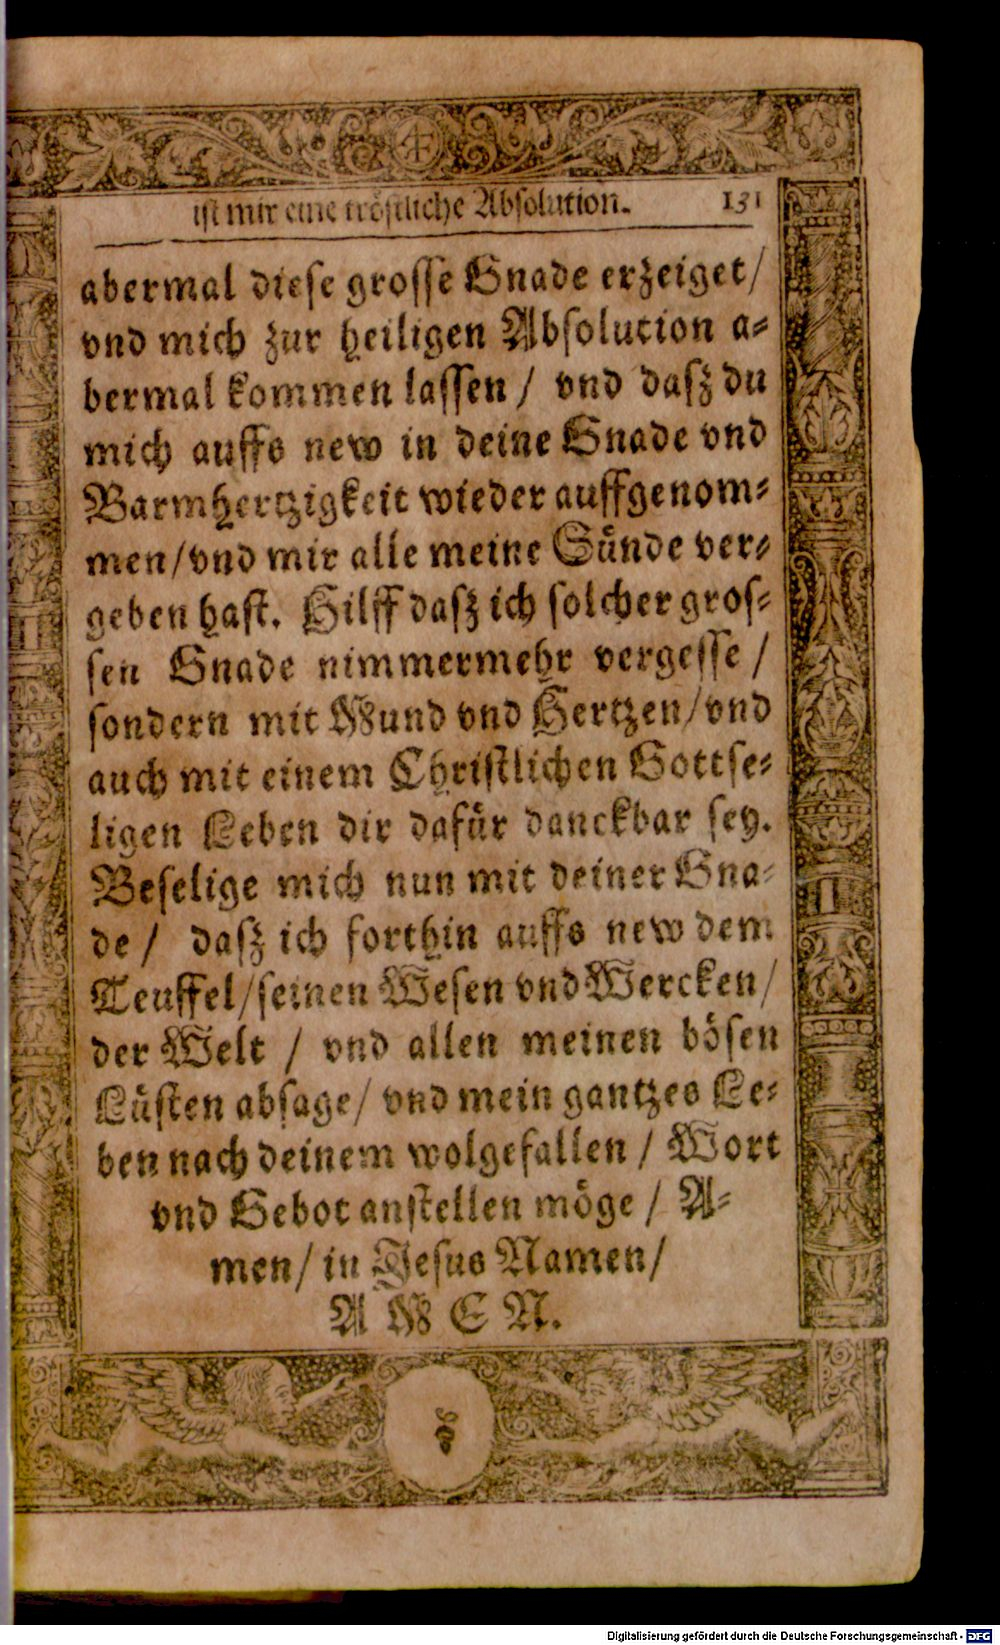 ist mir eine tröstliche Absolution. 131
abermal diese grosse Gnade erzeiget/
vnd mich zur heiligen Absolution a-
bermal kommen lassen / vnd dasz du
mich auffs new in deine Gnade vnd
Barmhertzigkeit wieder auffgenom-
men/vnd mir alle meine Sünde ver-
geben hast. Hilff dasz ich solcher gros-
sen Gnade nimmermehr vergesse /
sondern mit Mund vnd Hertzen/vnd
auch mit einem Christlichen Gottse-
ligen Leben dir dafür danckbar sey.
Beselige mich nun mit deiner Gna-
de / dasz ich forthin auffs new dem
Teuffel/seinen Wesen vnd Wercken/
der Welt / vnd allen meinen bösen
Lüsten absage/ vnd mein gantzes Le-
ben nach deinem wolgefallen / Wort
vnd Gebot anstellen möge / A-
men/ in Jesus Namen/
A M E N.
Digitalisierung gefördert durch die Deutsche Forschungsgemeinschaft - DFG